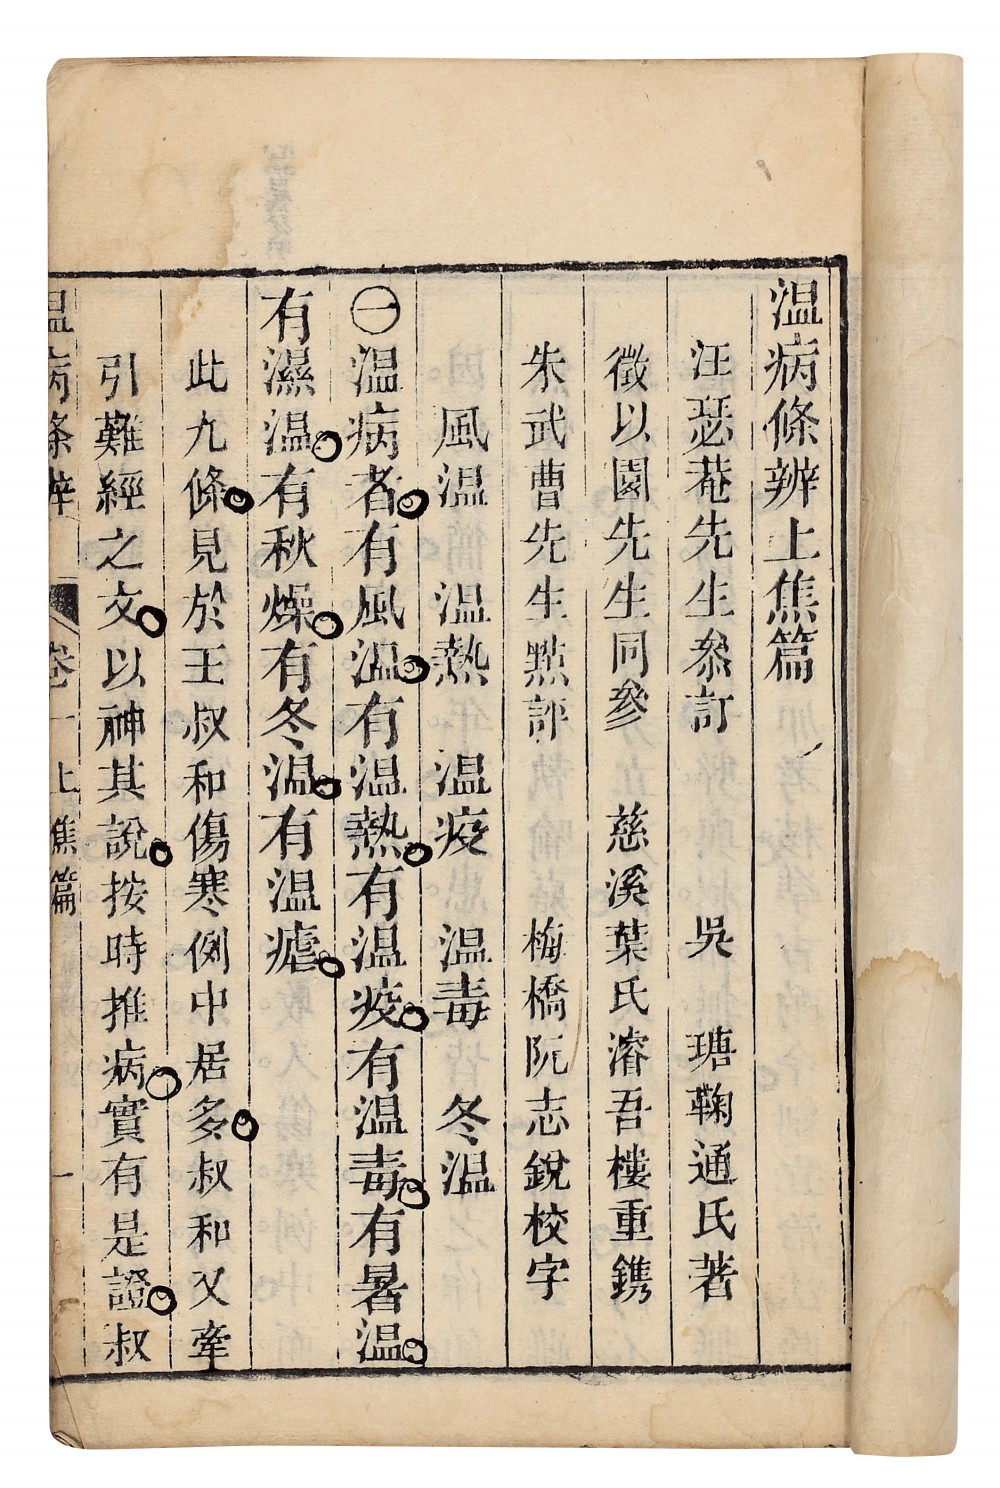 温病條辨上焦篇
汪瑟菴先生叅訂　吳　瑭鞠通氏著
徵以園先生同參　慈溪葉氏濬吾樓重鐫
朱武曹先生點評　梅橋阮志銳校字
風温　温熱　温疫　温毒　冬温
㊀温病者有風温有温熱有温疫有温毒有暑温
有濕温有秋燥有冬温有温瘧
此九條見於王叔和傷寒例中居多叔和又牽
引難經之文以神其說按時推病實有是證叔
温病條辨　卷一上焦篇　一